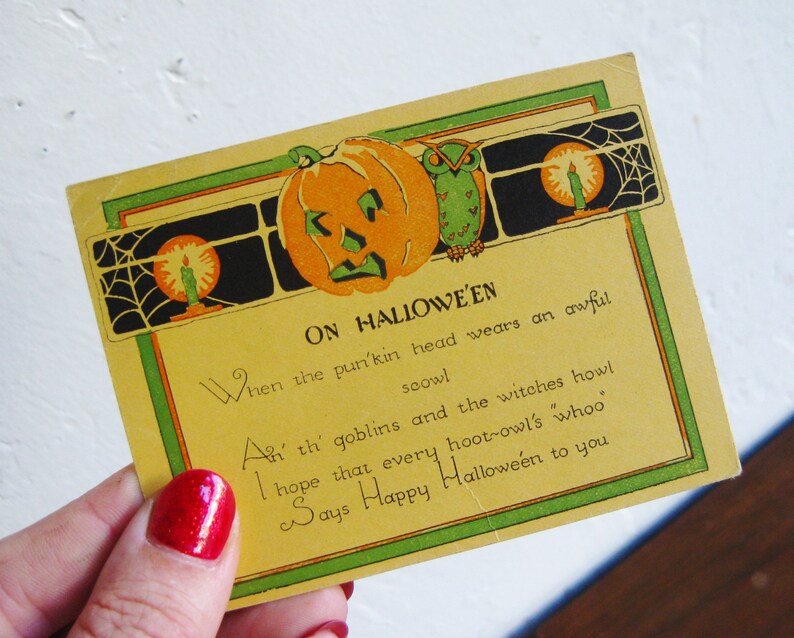 ON HALLOWE'EN
When the pun'kin head wears an awful
scowl
An' th' goblins and the witches howl
I hope that every hoot-owl's "whoo"
Says Happy Hallowe'en to you